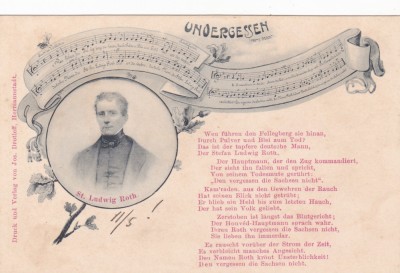 UNVERGESSEN
Druck und Verlag von Jos. Drotleff, Hermannstadt.
St. Ludwig Roth.
11/5 !
Wen führen den Fellegberg sie hinan,
Durch Pulver und Blei zum Tod?
Das ist der tapfere deutsche Mann,
Der Stefan Ludwig Roth.
Der Hauptmann, der den Zug kommandiert,
Der sieht ihn fallen und spricht,
Von seinem Todesmute gerührt:
„Den vergessen die Sachsen nicht".
Kam'raden, aus den Gewehren der Rauch
Hat seinen Blick nicht getrübt;
Er blieb ein Held bis zum letzten Hauch,
Der hat sein Volk geliebt,
Zerstoben ist längst das Blutgericht;
Der Honvéd-Hauptmann sprach wahr.
Ihren Roth vergessen die Sachsen nicht,
Sie lieben ihn immerdar.
Es rauscht vorüber der Strom der Zeit,
Es verbleicht manches Angesicht.
Den Namen Roth krönt Unsterblichkeit!
Den vergessen die Sachsen nicht.